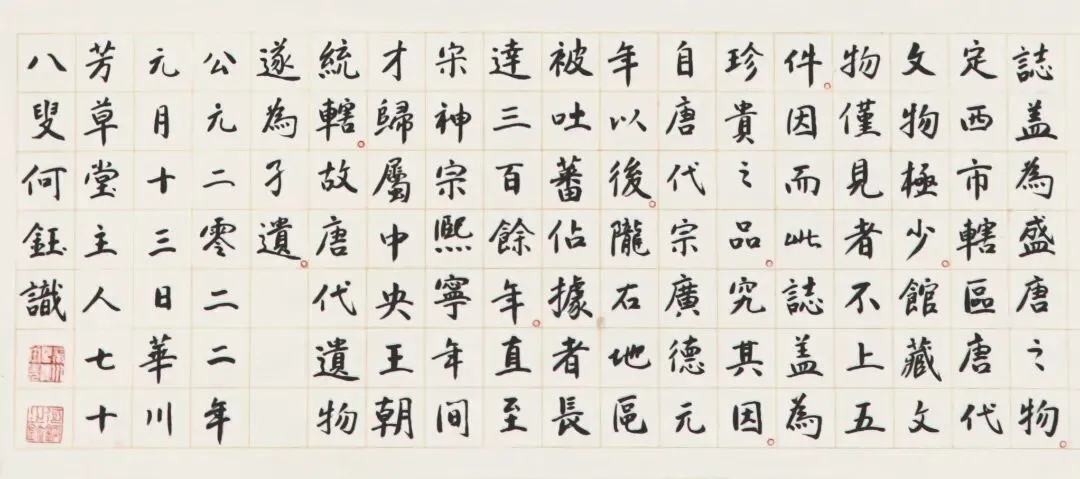 誌蓋為盛唐之物
定西市轄區唐代
文物極少館藏文
物僅見者不上五
件因而此誌蓋為
珍貴之品究其因
自唐代宗廣德元
年以後隴右地區
被吐蕃佔據者長
達三百餘年直至
宋神宗熙寧年間
才歸屬中央王朝
統轄故唐代遺物
遂為孑遺
公元二零二二年
元月十三日華川
芳草堂主人七十
八叟何鈺識